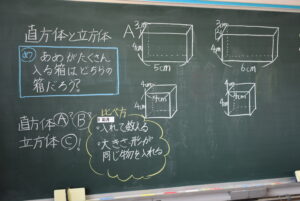 直方体と立方体
め あめがたくさん
入る箱はどちらの
箱だろう?
A
3cm
4cm
5cm
3cm
4cm
6cm
4cm
4cm
4cm
4cm
直方体Ⓐ Ⓑ
立方体Ⓒ!
比べ方
・入れて数える
・大きさ形が
同じ物を入れる